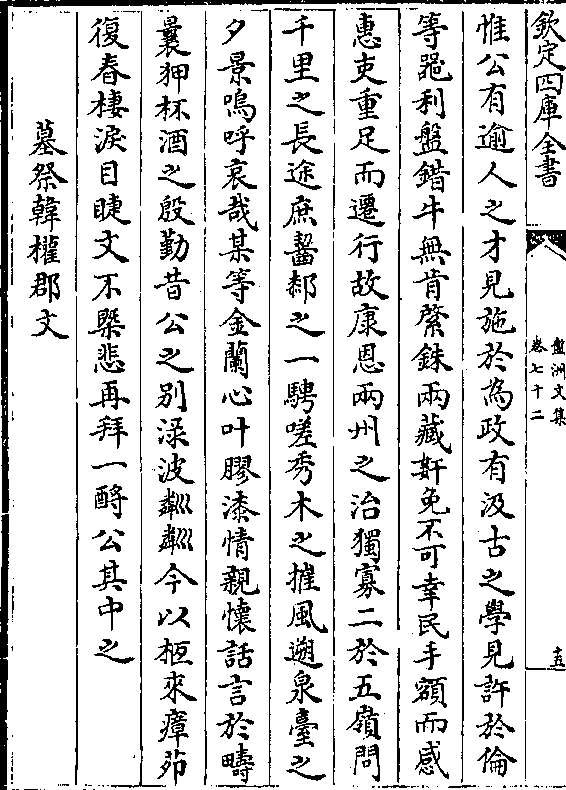 欽定四庫全書
盤洲文集
卷七十二
十五
惟公有逾人之才見施於為政有汲古之學見許於倫
等毣利盤錯牛無肯綮銖兩藏姧免不可幸民手額而感
惠吏重足而遷行故康恩兩州之治獨寡二於五嶺問
千里之長途庶齧郄之一騁嗟秀木之摧風遡泉臺之
夕景嗚呼哀哉某等金蘭心叶膠漆情親懷話言於疇
曩狎杯酒之殷勤昔公之别渌波粼粼今以柩來瘴茆
復春棲淚目睫文不槩悲再拜一酹公其中之
墓祭韓權郡文